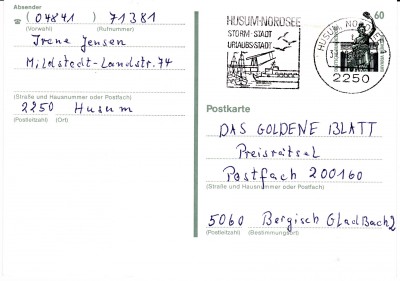 Absender
(04841) 71381
(Vorwahl) (Rufnummer)
Irene Jensen
Mildstedt-Landstr. 74
(Straße und Hausnummer oder Postfach)
2250 Husum
(Postleitzahl) (Ort)
HUSUM-NORDSEE
STORM-STADT
URLAUBSSTADT
HUSUM, NO
2250
60
Postkarte
DAS GOLDENE BLATT
Preisrätsel
Postfach 200160
(Straße und Hausnummer oder Postfach)
5060 Bergisch Gladbach 2
(Postleitzahl) (Bestimmungsort)